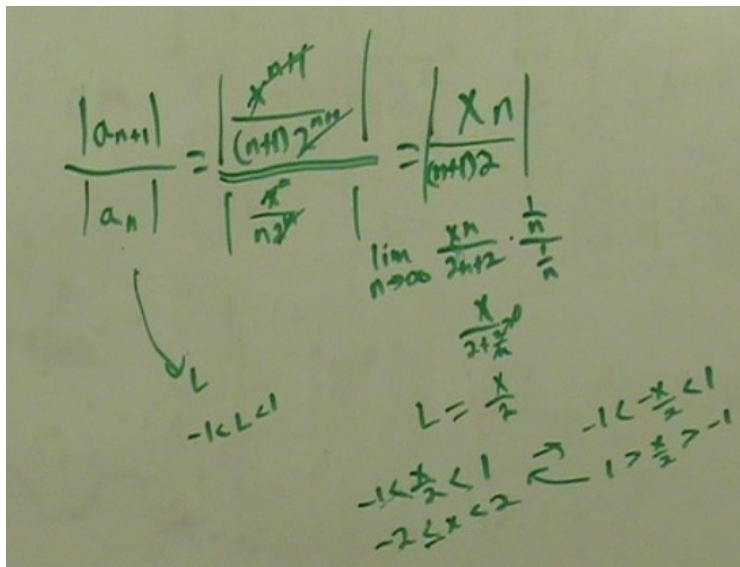 |a_{n+1}| / |a_n| = |x^{n+1} / ((n+1) 2^{n+1})| / |x^n / (n2^n)| = |xn / ((n+1)2)|
lim n→∞ xn / (2n+2) · (1/n) / (1/n)
x / (2 + 2/n) → 0
L
-1 < L < 1
L = x/2
-1 < -x/2 < 1
-1 < x/2 < 1
1 > x/2 > -1
-2 ≤ x < 2